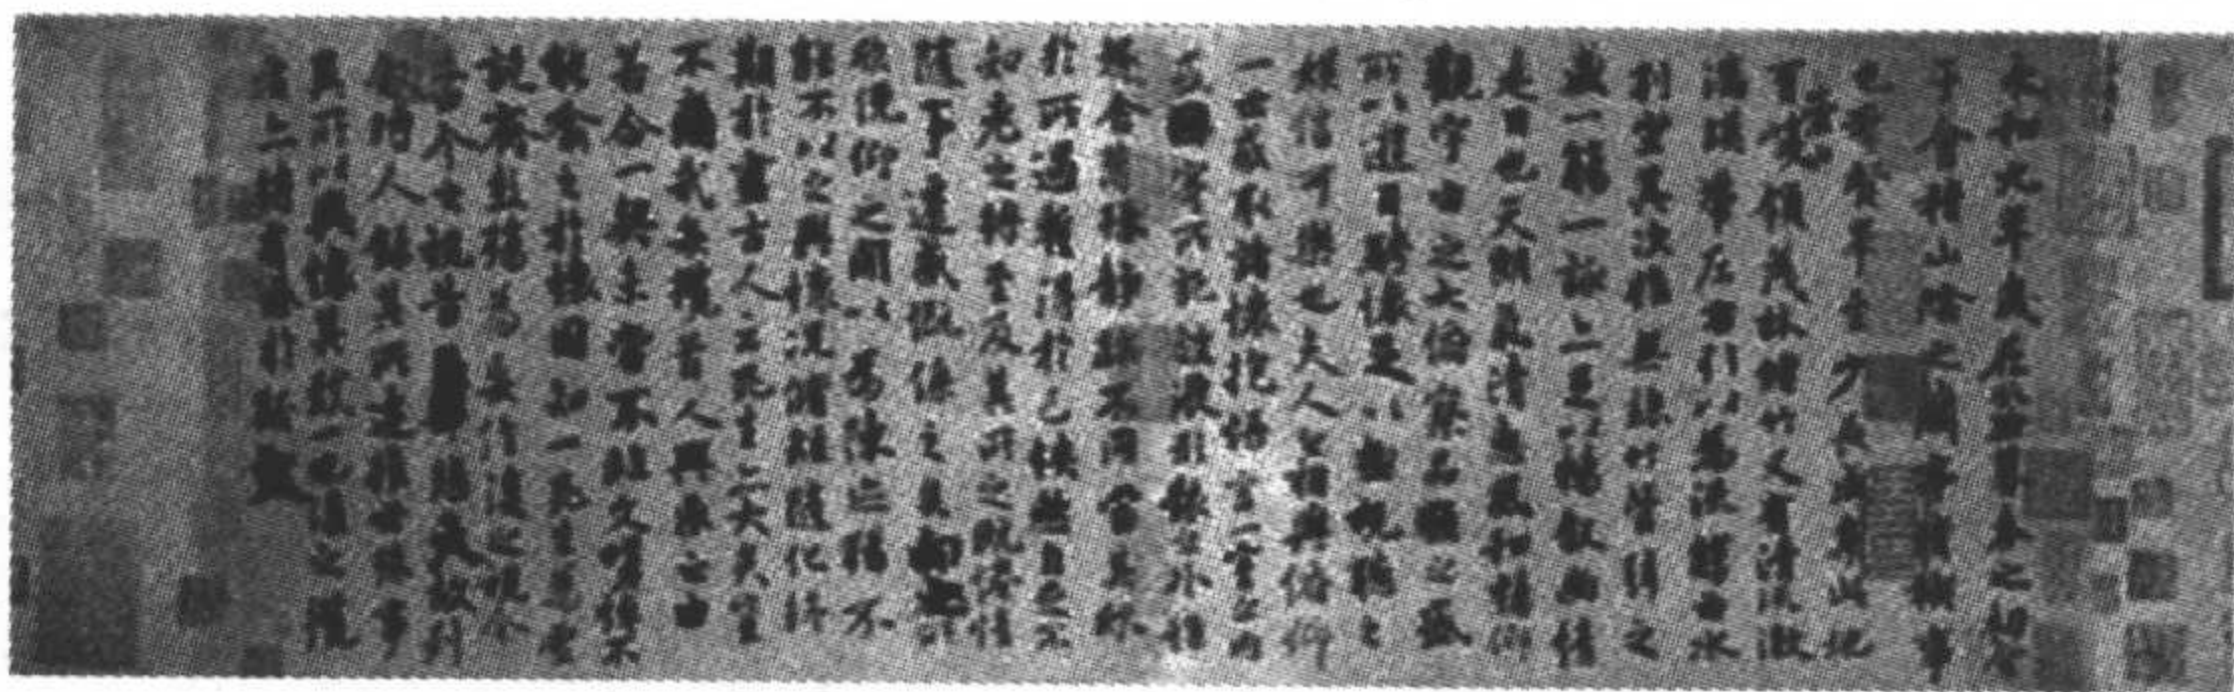 永和九年歲在癸丑暮春之初會
于會稽山陰之蘭亭脩禊事
也群賢畢至少長咸集此地
有崇山峻領茂林脩竹又有清流激
湍暎帶左右引以為流觴曲水
列坐其次雖無絲竹管弦之
盛一觴一詠亦足以暢敘幽情
是日也天朗氣清惠風和暢仰
觀宇宙之大俯察品類之盛
所以遊目騁懷足以極視聽之
娛信可樂也夫人之相與俯仰
一世或取諸懷抱悟言一室之內
或因寄所託放浪形骸之外雖
趣舍萬殊靜躁不同當其欣
於所遇暫得於己快然自足不
知老之將至及其所之既惓情
隨事遷感慨係之矣向之所
欣俛仰之間以為陳跡猶不
能不以之興懷況脩短隨化終
期於盡古人云死生亦大矣豈
不痛哉每攬昔人興感之由
若合一契未嘗不臨文嗟悼不
能喻之於懷固知一死生為虛
誕齊彭殤為妄作後之視今
亦由今之視昔悲夫故列
敘時人錄其所述雖世殊事
異所以興懷其致一也後之攬
者亦將有感於斯文